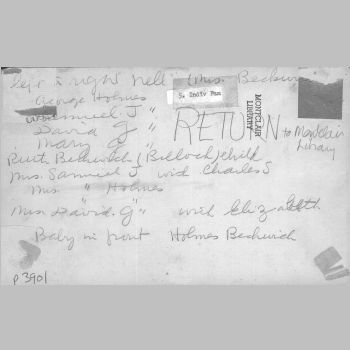 left to right Nell (Mrs. Beckwi
George Holmes
Samuel J "
David G "
Mary G "
Ruth Beckwith (Bulloch) child
Mrs. Samuel J with Charles S
Mrs " Holmes
Mrs. David G" with Elizabeth
Baby in front Holmes Beckwith
S. Indiv Fam
MONTCLAIR
LIBRARY
RETURN to Montclair
Library
P 3901